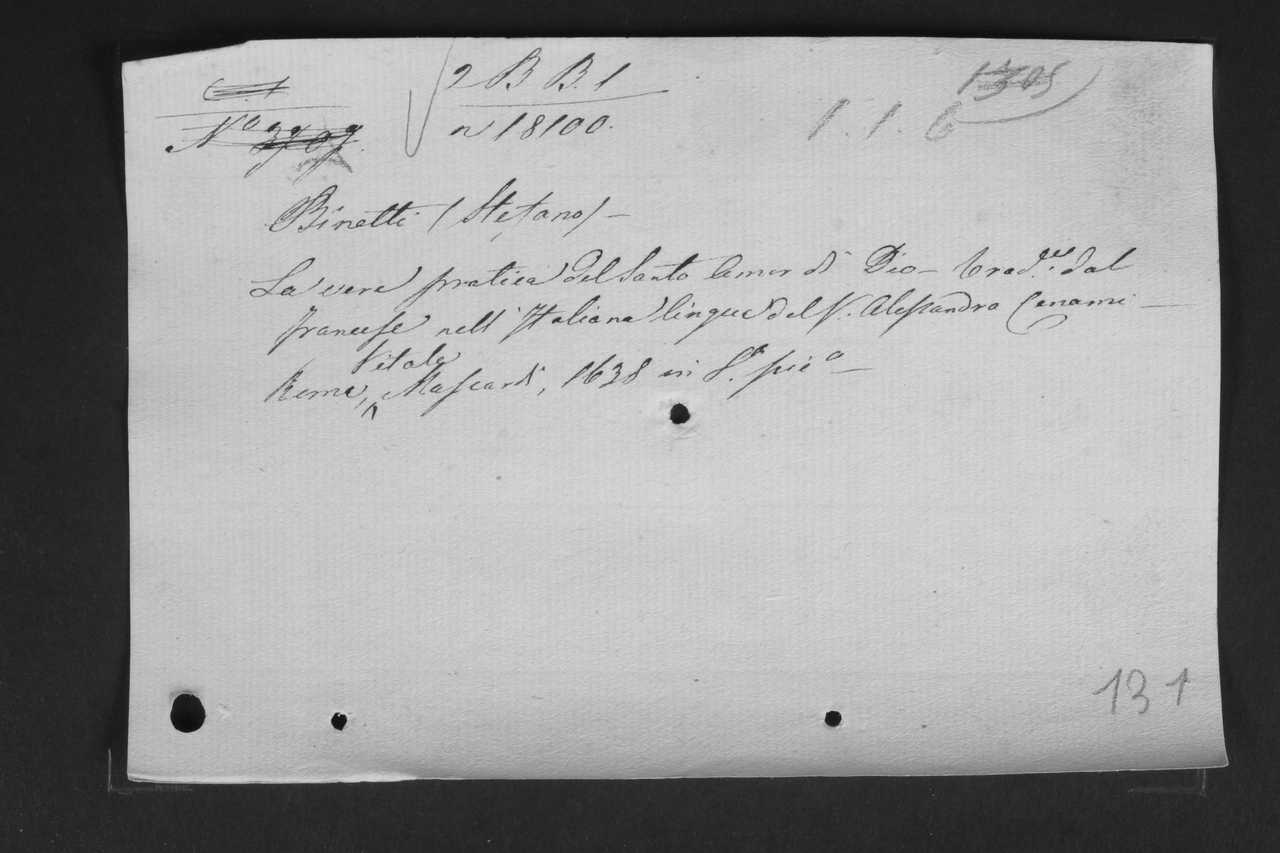 2 B B. 1
n 18100.
1. 1. 6
1305
Nº 3707.
Binetti (Stefano) –
La vera pratica del Santo Amor di Dio – trad.ᵉ dal
francese nell' Italiana lingua del S. Alessandro Cenami –
Roma, Vitale Mascardi, 1638 in 8.º pic.º –
131